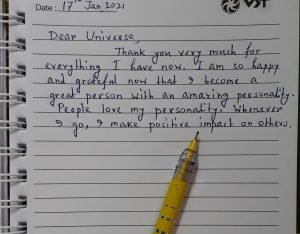 Date: 17th Jan, 2021
VST
Dear Universe
Thank you very much for
everything I have now. I am so happy
and grateful now that I become a
great person with an amazing personality.
People love my personality. Whenever
I go, I make positive impact on others.